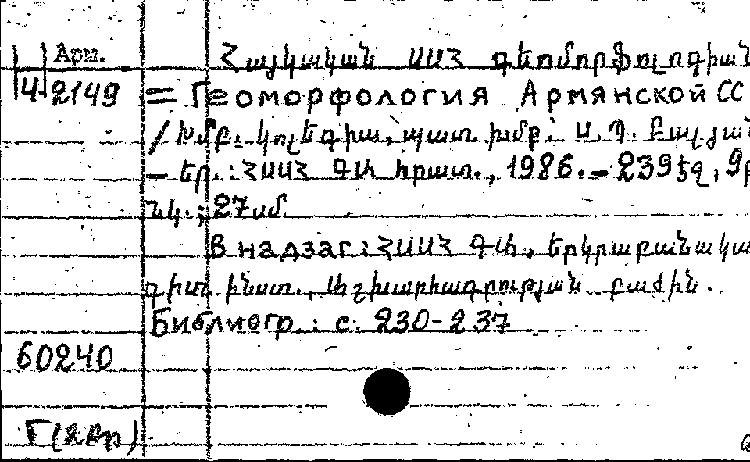 Арм. Հայկական ՍՍՀ գեոմորֆոլոգիան
14 2149 = Геоморфология Армянской СС
/ Խմբ. կոլեգիա, պատ. խմբ. Ս.Պ. Բալյան
– Եր.: ՀՍՍՀ ԳԱ հրատ., 1986. – 239 էջ, 9
նկ.; 27 սմ.
В надзаг: ՀՍՍՀ ԳԱ, երկրաբանակա
գիտ. ինստ., աշխարհագրության բաժին.
Библиогр.: с. 230-237
60240